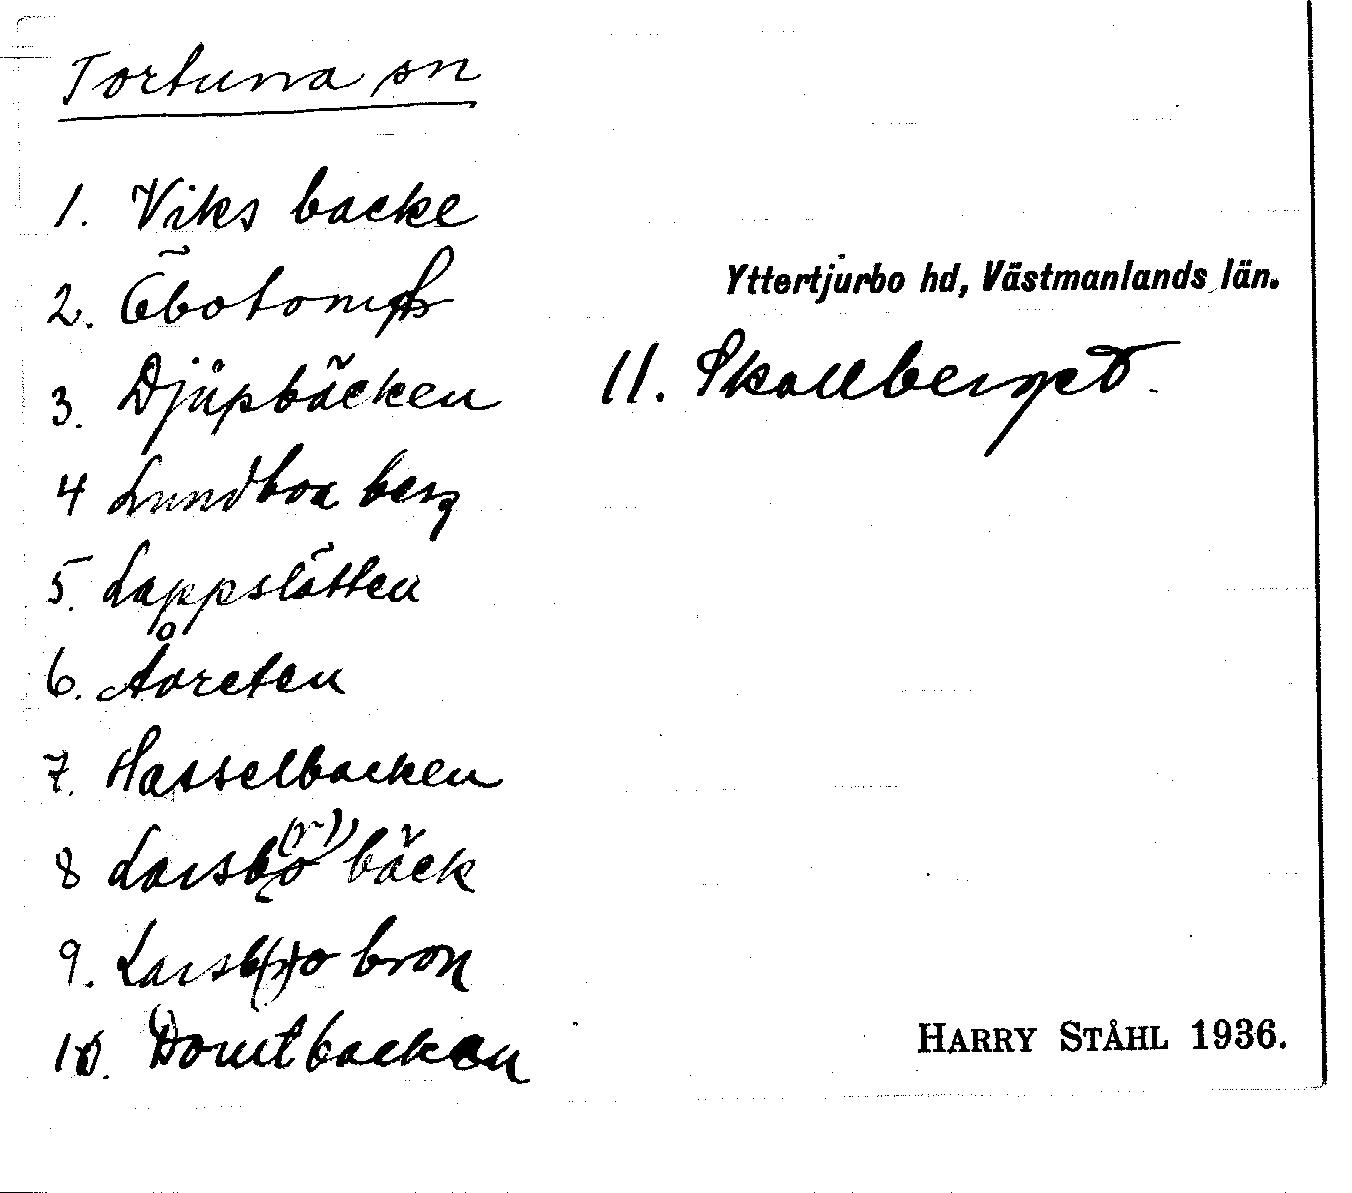 Tortuna sn
1. Viks backe
2.
3. Djupbäcken
4 Lundboa berg
5. Lappslätten
6.
7. Hasselbacken
8 bäck
9. bron
10.
Yttertjurbo hd, Västmanlands län.
11. Skallberget
HARRY STÅHL 1936.